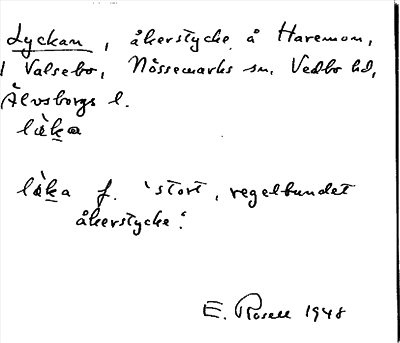 Lyckan, åkerstycke å Haremon,
1 Valsebo, Nössemarks sn, Vedbo hd,
Älvsborgs l.
lä̀ka
lä̀ka f. 'stort, regelbundet
åkerstycke'.
E. Rosell 1948